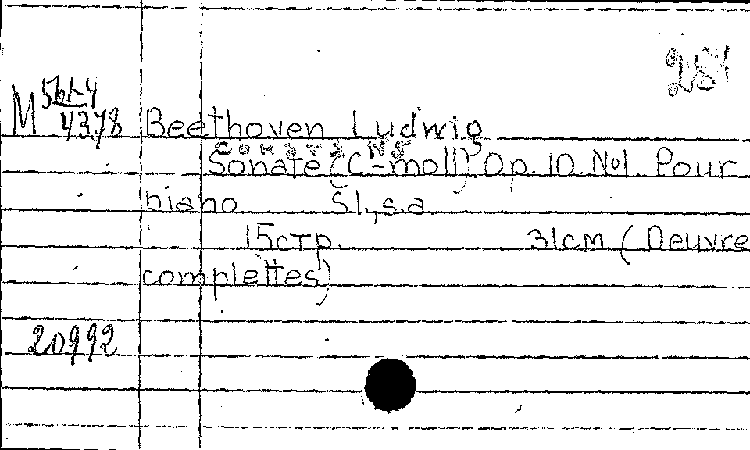 281
М 5б1-4
4378 Beethoven Ludwig
Соната №5
Sonate (C-moll) Op. 10 №1. Pour
piano S.l., s.a.
15стр. 31см (Oeuvre
complettes)
20992